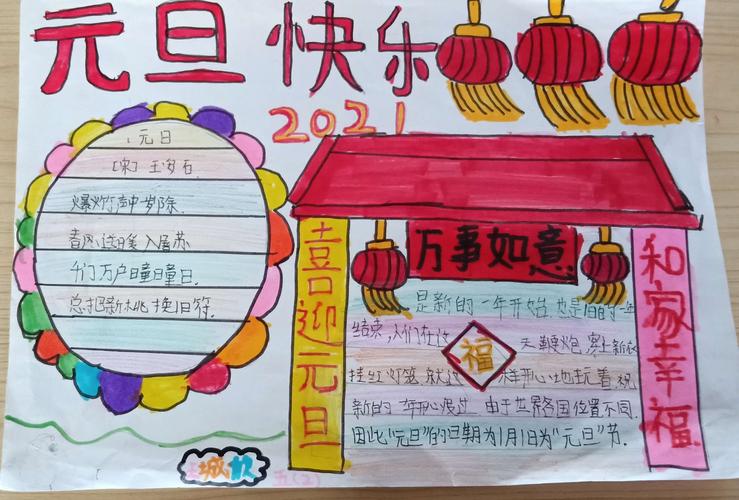 元旦 快乐
2021
元日
[宋] 王安石
爆竹声中一岁除
春风送暖入屠苏
千门万户曈曈日
总把新桃换旧符
喜迎元旦
万事如意
和家幸福
是新的一年开始,也是旧的一年
结束,人们在这 福 天 鞭炮 穿上新衣
挂红灯笼 就这 样开心地玩着 祝
新的一年开心度过 由于世界各国位置不同.
因此"元旦"的日期为1月1日为"元旦"节.
城
五(2)